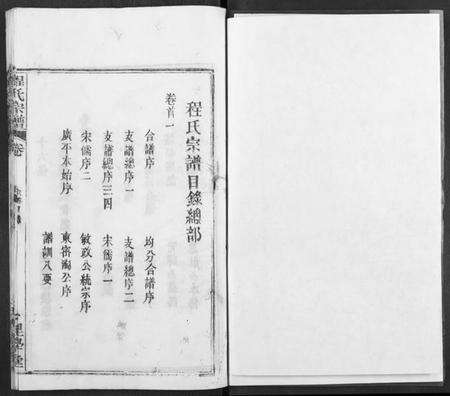 程氏宗譜目錄總部
卷首一
合譜序 均分合譜序
支譜總序一 支譜總序二
支譜總序三四 宋儒序一
宋儒序二 敏政公統宗序
廣平本始序 東密淘公序
譜訓八要
程氏宗譜 卷